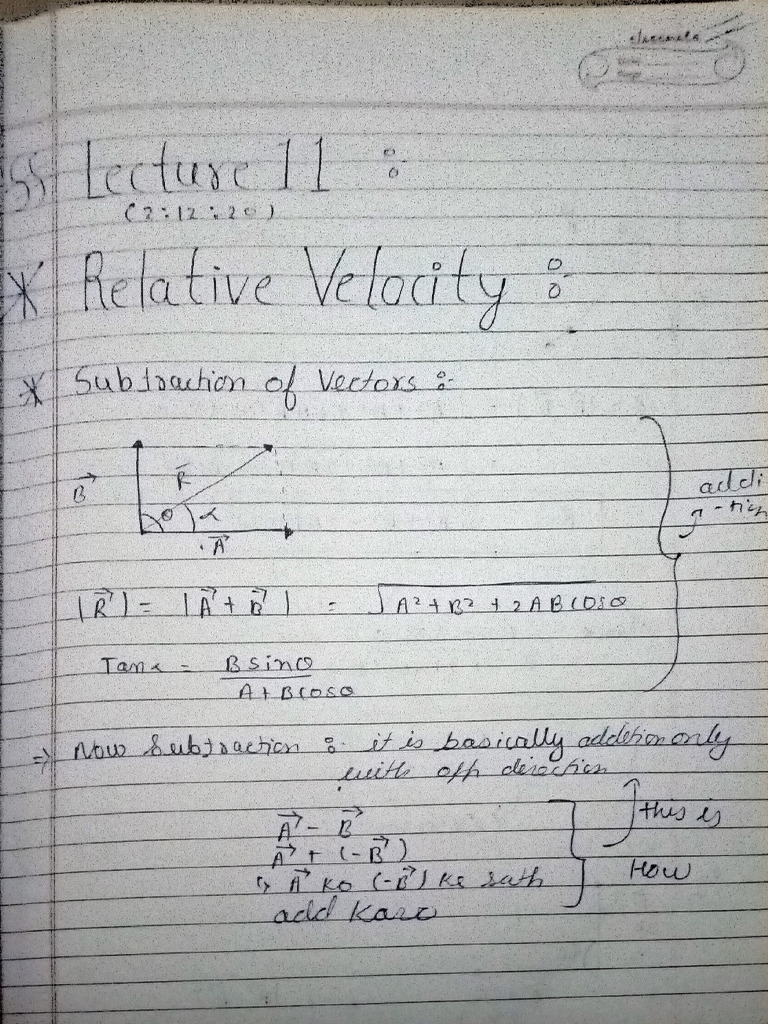 Lecture 11 :
(2:12:20)
* Relative Velocity :
* Subtraction of Vectors :-
B⃗
R⃗
θ
α
A⃗
addi
-tion
|R⃗| = |A⃗ + B⃗| = √A² + B² + 2ABcosθ
Tanα = Bsinθ
A + Bcosθ
⇒ Now Subtraction :- it is basically addition only
with opp direction
A⃗ - B⃗
A⃗ + (-B⃗)
↳ A⃗ ko (-B⃗) ke sath
add karo
this is
How